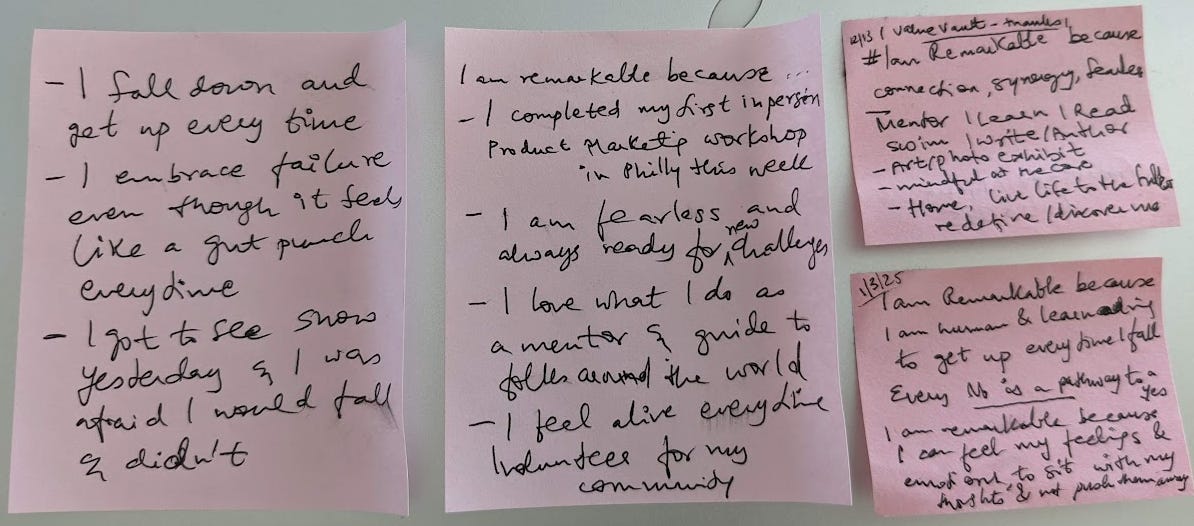 - I fall down and
get up every time
- I embrace failure
even though it feels
like a gut punch
everytime
- I got to see snow
yesterday & I was
afraid I would fall
& didn't
I am remarkable because ...
- I completed my first inperson
Product Marketig workshop
in Philly this week
- I am fearless and
always ready for new challenges
- I love what I do as
a mentor & guide to
folks around the world
- I feel alive everytime
I volunteer for my
community
12/13 / Value Vault -
# I am Remarkable because
connection, synergy, fearless
Mentor / Learn / Read
swim / write / Author
- Art/photo exhibit
- mindful at the core
- Home, live life to the fullest
redefine / discover me
1/3/25
I am Remarkable because
I am human & learning
to get up everytime I fall
Every No is a pathway to a
yes
I am remarkable because
I can feel my feelings &
emotions to sit with my
thoughts & not push them away